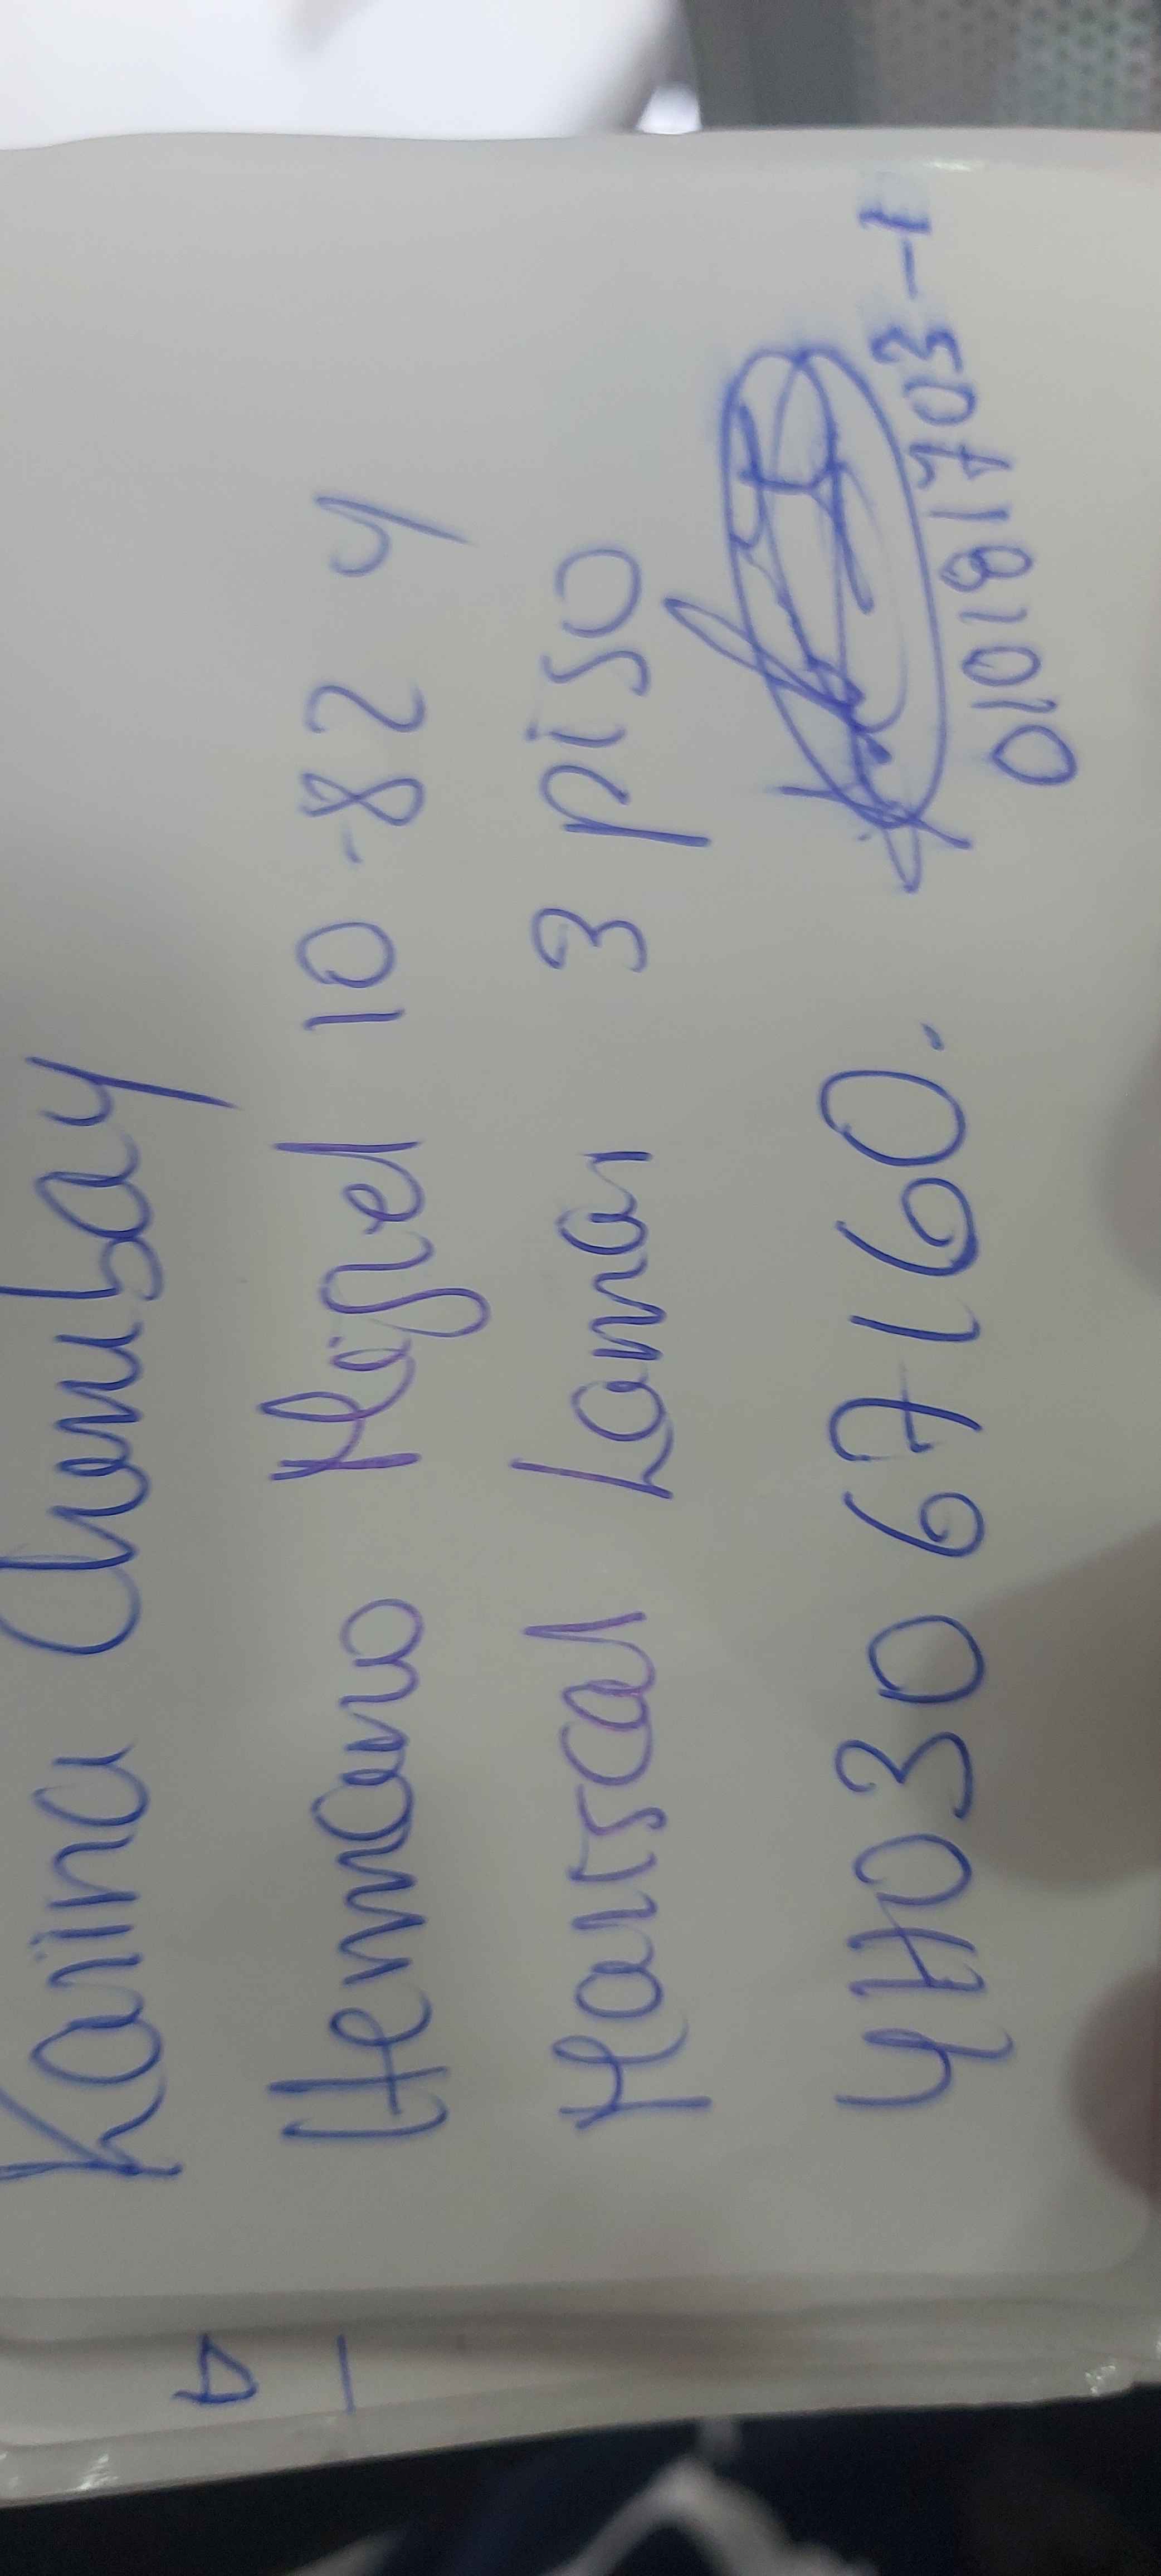 Karina Chumbay
Hermano Miguel 10-82 y
Mariscal Lamar 3 piso
4H030 67160.
010181703-1